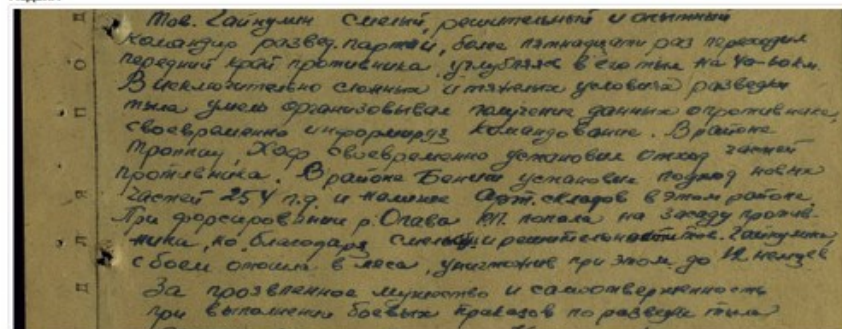 Тов. Гайнулин смелый, решительный и опытный
командир развед. партии, более пятнадцати раз переходил
передний край противника, углубляясь в его тыл на 40-60 км.
В исключительно сложных и тяжелых условиях разведки
тыла умело организовывал получение данных о противнике,
своевременно информируя командование. В районе
Троппау, Хоф своевременно установил отход частей
противника. В районе Бениш установил подход новых
частей 254 п.д. и наличие арт. складов в этом районе.
При форсировании р. Опава РП. попала на засаду против-
ника, но, благодаря смелости и решительности тов. Гайнулина,
с боем отошла в леса, уничтожив при этом до 12 немцев
За проявленное мужество и самоотверженность
при выполнении боевых приказов по разведке тыла